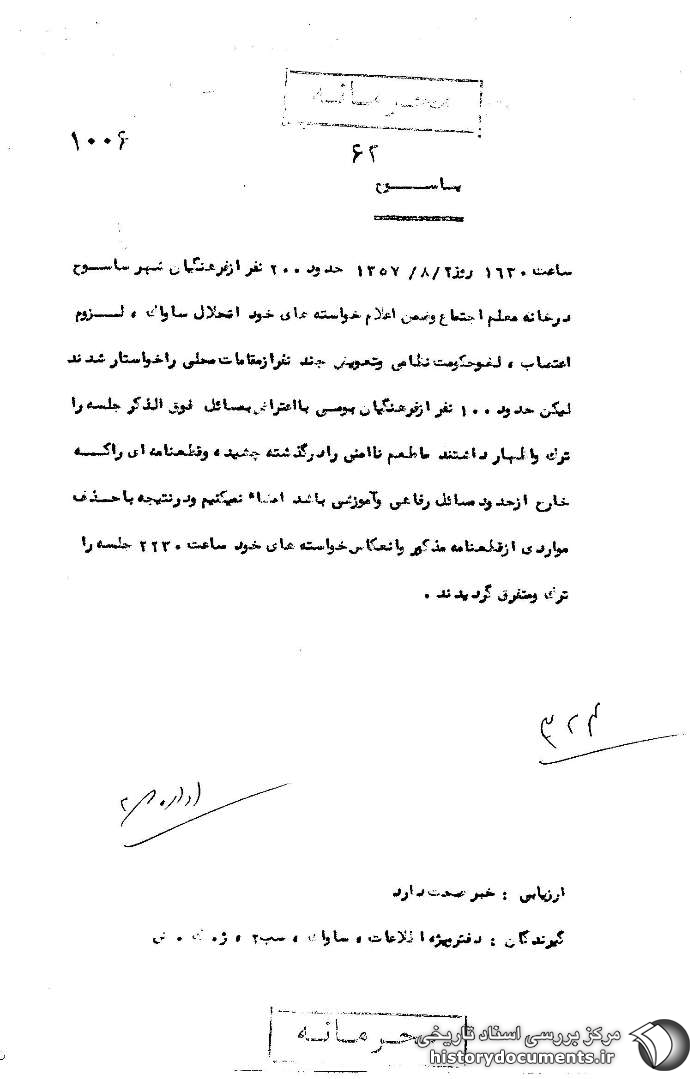 محرمانه
۱۰۰۶
۶۲
یاســـوج
ساعت ۱۶۳۰ روز ۲/ ۸/ ۱۳۵۷ حدود ۲۰۰ نفر ازفرهنگیان شهر یاســـوج
درخانه معلم اجتماع وضمن اعلام خواسته های خود انحلال ساواك ، لــزوم
اعتصاب ، لغوحکومت نظامی وتعویض چند نفرازمقامات محلی راخواستار شدند
لیکن حدود ۱۰۰ نفر ازفرهنگیان بومی بااعتراض بمسائل فوق الذکر جلسه را
ترك واظهار داشتند ماطعم ناامنی رادرگذشته چشیده وقطعنامه ای راکـــه
خارج ازحدود مسائل رفاهی وآموزشی باشد امضاء نمیکنیم ودرنتیجه باحــذف
مواردی ازقطعنامه مذکور وانعکاس خواسته های خود ساعت ۲۲۳۰ جلسه را
ترك ومتفرق گردیدند .
۳۲۴
ارزیابی : خبر صحت دارد
گیرندگان : دفترویژه اطلاعات ، ساواك ،
محرمانه
مرکز بررسی اسناد تاریخی
historydocuments.ir